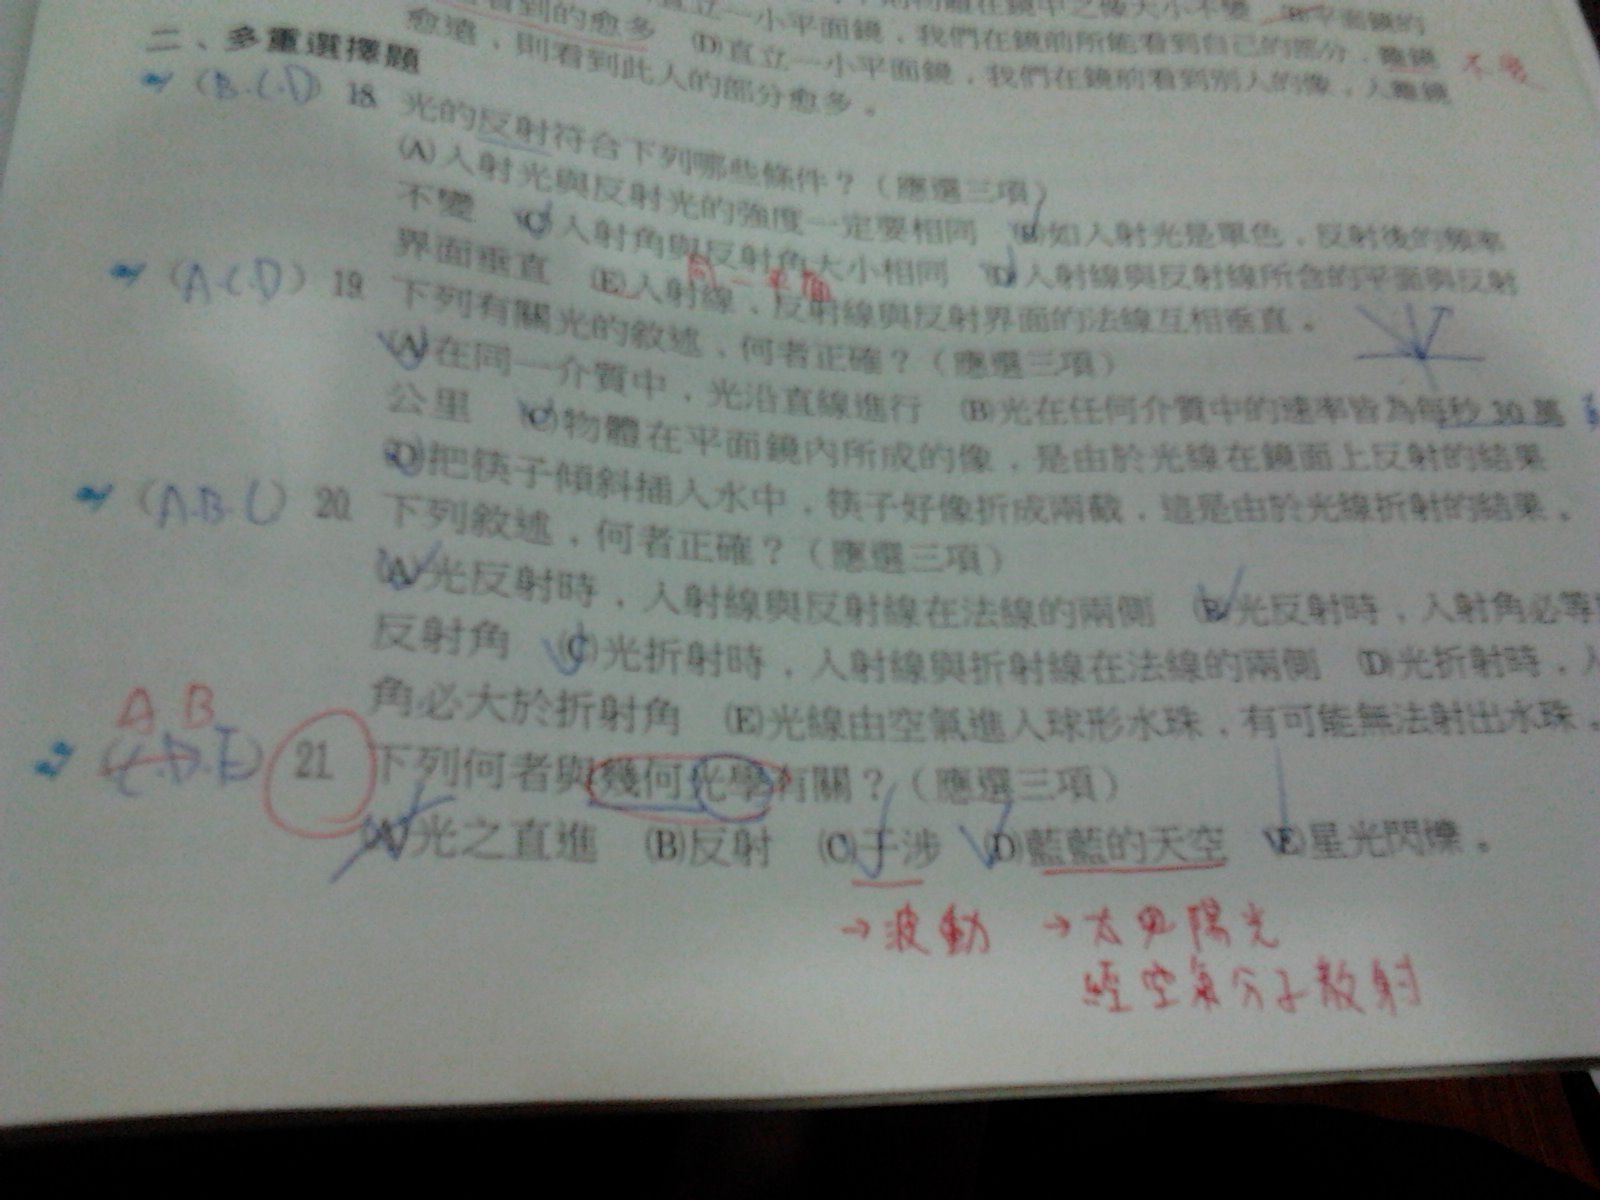 看到的愈多 (D)直立一小平面鏡，我們在鏡前所能看到自己的部分，離鏡
愈遠，則看到此人的部分愈多。
不變
二、多重選擇題
(B.C.D) 18. 光的反射符合下列哪些條件？（應選三項）
(A)入射光與反射光的強度一定要相同 (B)如入射光是單色，反射後的頻率
不變 (C)入射角與反射角大小相同 (D)入射線與反射線所含的平面與反射
界面垂直 (E)入射線、反射線與反射界面的法線互相垂直。
同一平面
(A.C.D) 19. 下列有關光的敘述，何者正確？（應選三項）
(A)在同一介質中，光沿直線進行 (B)光在任何介質中的速率皆為每秒 30 萬
公里 (C)物體在平面鏡內所成的像，是由於光線在鏡面上反射的結果
(D)把筷子傾斜插入水中，筷子好像折成兩截，這是由於光線折射的結果。
(A.B.C) 20. 下列敘述，何者正確？（應選三項）
(A)光反射時，入射線與反射線在法線的兩側 (B)光反射時，入射角必等
反射角 (C)光折射時，入射線與折射線在法線的兩側 (D)光折射時，入
角必大於折射角 (E)光線由空氣進入球形水珠，有可能無法射出水珠。
A B
(C.D.E) 21. 下列何者與幾何光學有關？（應選三項）
(A)光之直進 (B)反射 (C)干涉 (D)藍藍的天空 (E)星光閃爍。
→波動 →太陽光
經空氣分子散射